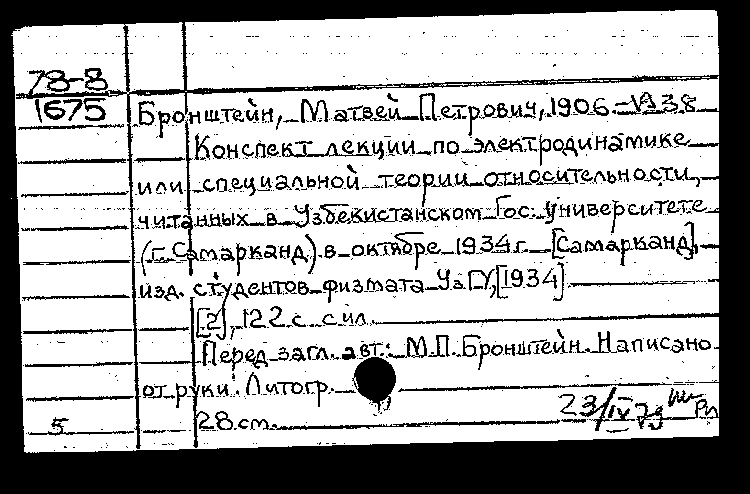 78-8
1675
Бронштейн, Матвей Петрович, 1906-1938
Конспект лекции по электродинамике
или специальной теории относительности,
читанных в Узбекистанском Гос. университете
(г. Самарканд) в октябре 1934 г. [Самарканд],
изд. студентов физмата УзГУ, [1934]
[2], 122 с. с ил.
Перед загл. авт.: М.П. Бронштейн. Написано
от руки. Литогр.
5 28 см. 23/IV